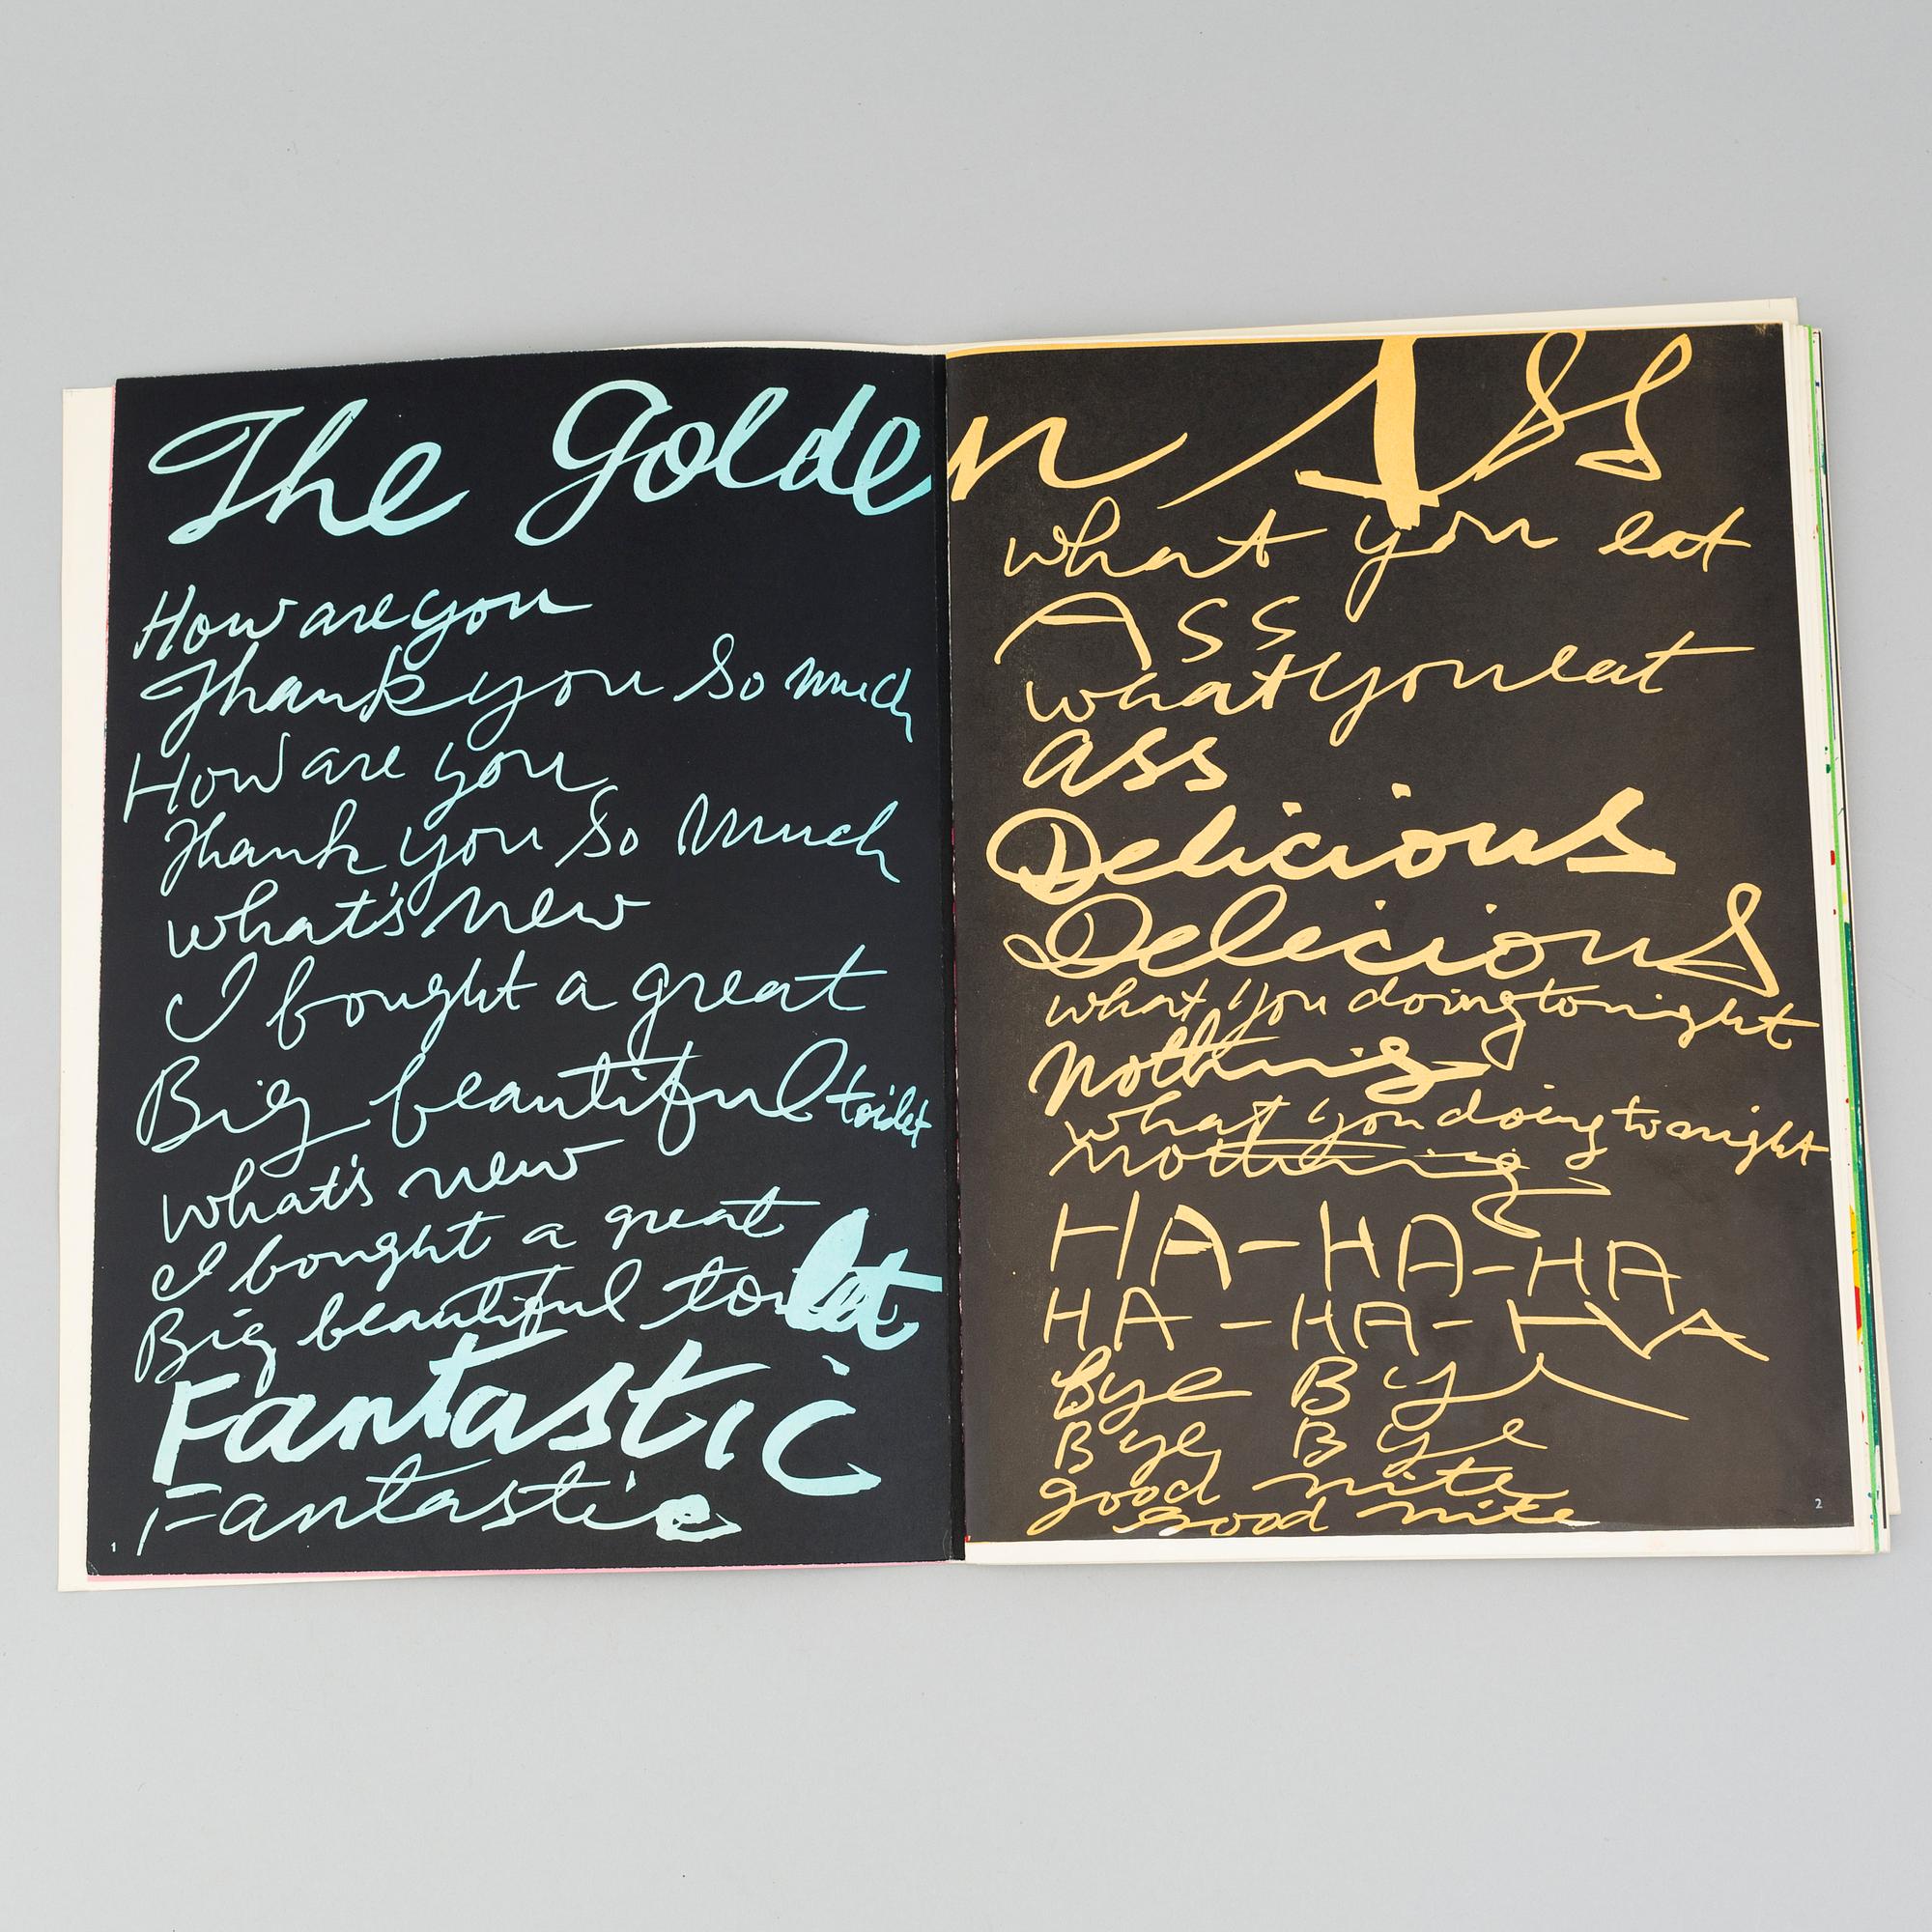 The Golden Ass
How are you
Thank you So much
How are you
Thank you So Much
what's new
I bought a great
Big beautiful toilet
what's new
I bought a great
Big beautiful toilet
Fantastic
Fantastic
1
what you eat
Ass
what you eat
ass
Delicious
Delicious
what you doing tonight
Nothing
what you doing tonight
nothing
HA-HA-HA
HA-HA-HA
Bye Bye
Bye Bye
good nite
good nite
2